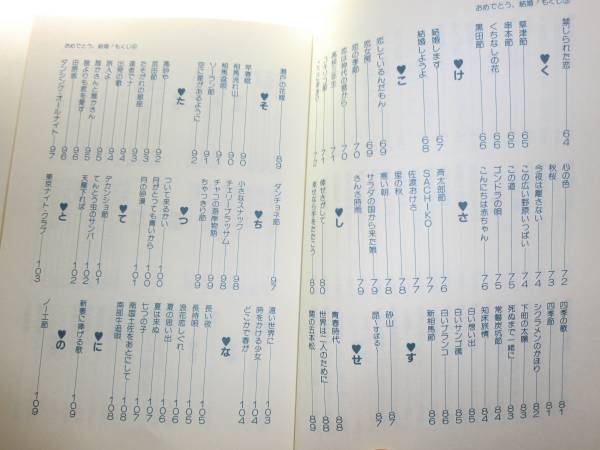 おめでとう、結婚！もくじ②
禁じられた恋 64
♥く
草津節 65
串本節 65
くちなしの花 66
黒田節 66
♥け
結婚します 67
結婚しようよ 68
♥こ
恋しているんだもん 69
恋女房 69
恋の季節 70
恋は時代の窓から 70
心の色 72
秋桜 73
今夜は離さない 74
この広い野原いっぱい 74
この道 75
ゴンドラの唄 75
こんにちは赤ちゃん 76
♥さ
斉太郎節 76
SACHIKO 77
佐渡おけさ 77
里の秋 78
寒い朝 78
サラダの国から来た娘 79
さんさ時雨 79
♥し
倖せさがして 80
幸せなら手をたたこう 80
四季の歌 81
四季節 81
シクラメンのかほり 82
下町の太陽 83
死ぬまで一緒に 83
常磐炭坑節 84
知床旅情 84
白い想い出 85
白いサンゴ礁 85
白いブランコ 86
新相馬節 86
♥す
砂山 87
昴―すばる― 87
♥せ
青春時代 88
世界は二人のために 88
関の五本松 89
おめでとう、結婚！もくじ③
瀬戸の花嫁 89
♥そ
早春賦 90
相馬流れ山 90
相馬盆唄 91
ソーラン節 91
空に星があるように 92
♥た
田原坂 96
旅人よ 95
ダンシング・オールナイト 97
ダンチョネ節 97
♥ち
小さなスナック 98
チェリーブラッサム 98
チャコの海岸物語 99
ちゃっきり節 99
♥つ
ついて来るかい 100
月がとっても青いから 100
月の砂漠 101
♥て
デカンショ節 101
てんとう虫のサンバ 102
天竜下れば 102
♥と
東京ナイト・クラブ 103
遠い世界に 103
時をかける少女 104
どこかで春が 104
♥な
長い夜 105
長持唄 105
浪花恋しぐれ 106
夏の思い出 106
夏は来ぬ 107
七つの子 107
南国土佐をあとにして 108
南部牛追唄 108
♥に
新妻に捧げる歌 109
♥の
ノーエ節 109